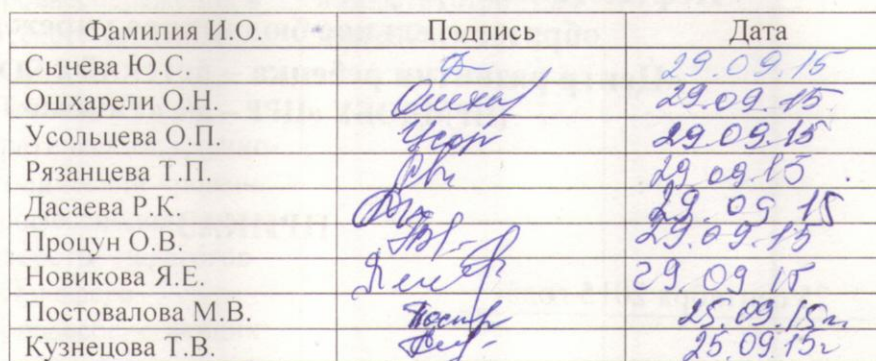 Фамилия И.О. Подпись Дата
Сычева Ю.С. 29.09.15
Ошхарели О.Н. Ошхар 29.09.15.
Усольцева О.П. Усор 29.09.15
Рязанцева Т.П. 29.09.15.
Дасаева Р.К. 29.09 15
Процун О.В. 29.09.15
Новикова Я.Е. 29.09 15
Постовалова М.В. 25.09.15г.
Кузнецова Т.В. 25.09.15г